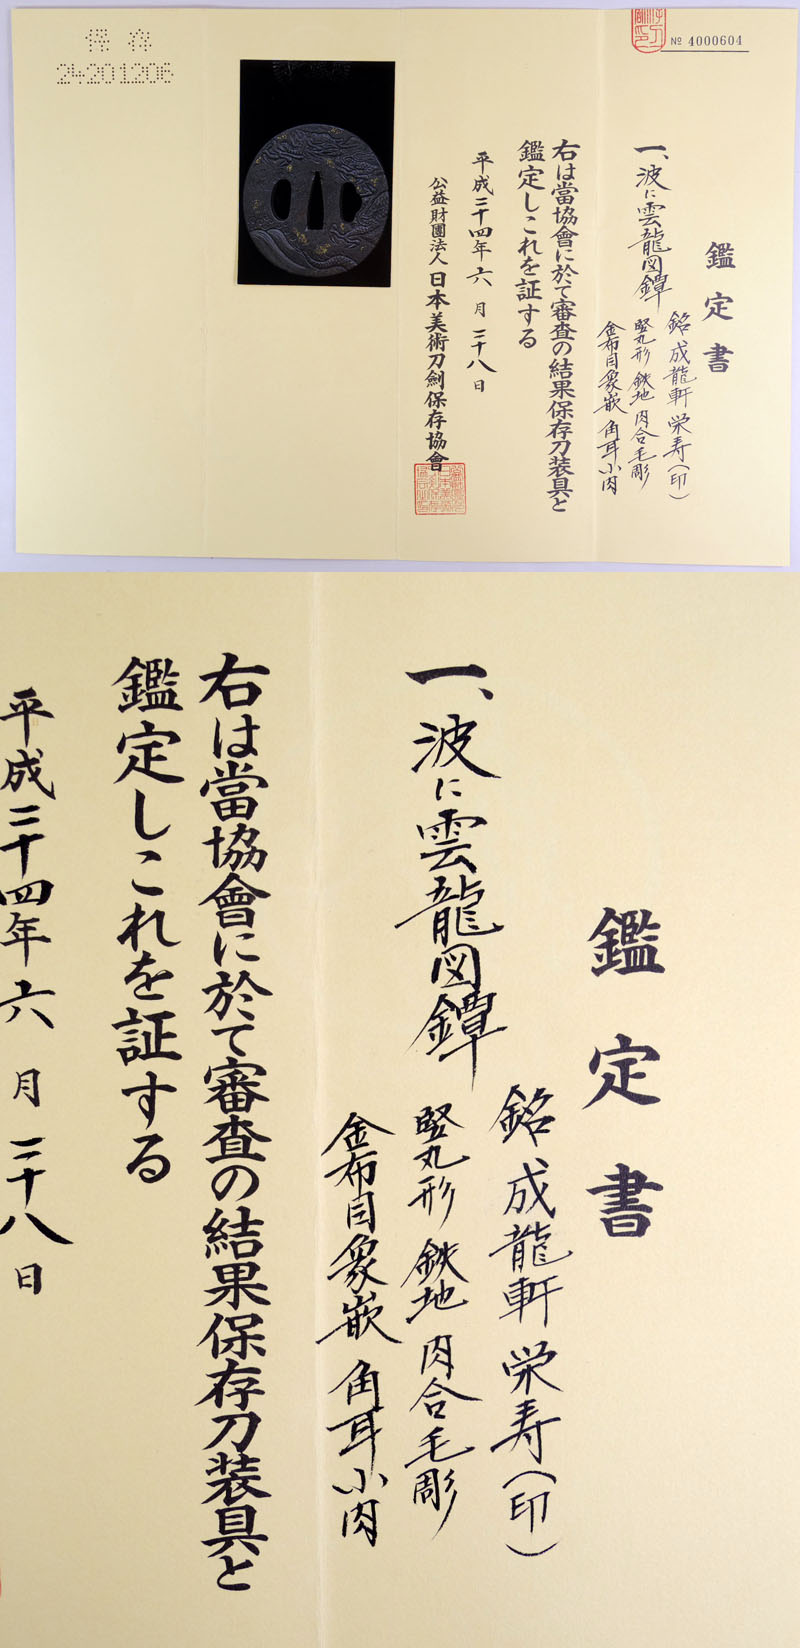 保存
24201206
№ 4000604
鑑定書
一、波に雲龍図鐔
銘 成龍軒栄寿(印)
竪丸形 鉄地 肉合毛彫
金布目象嵌 角耳小肉
右は當協會に於て審査の結果保存刀装具と
鑑定しこれを証する
平成二十四年 六 月 二十八 日
公益財團法人 日本美術刀剣保存協會
鑑定書
一、波に雲龍図鐔
銘 成龍軒栄寿(印)
竪丸形 鉄地 肉合毛彫
金布目象嵌 角耳小肉
右は當協會に於て審査の結果保存刀装具と
鑑定しこれを証する
平成二十四年 六 月 二十八 日